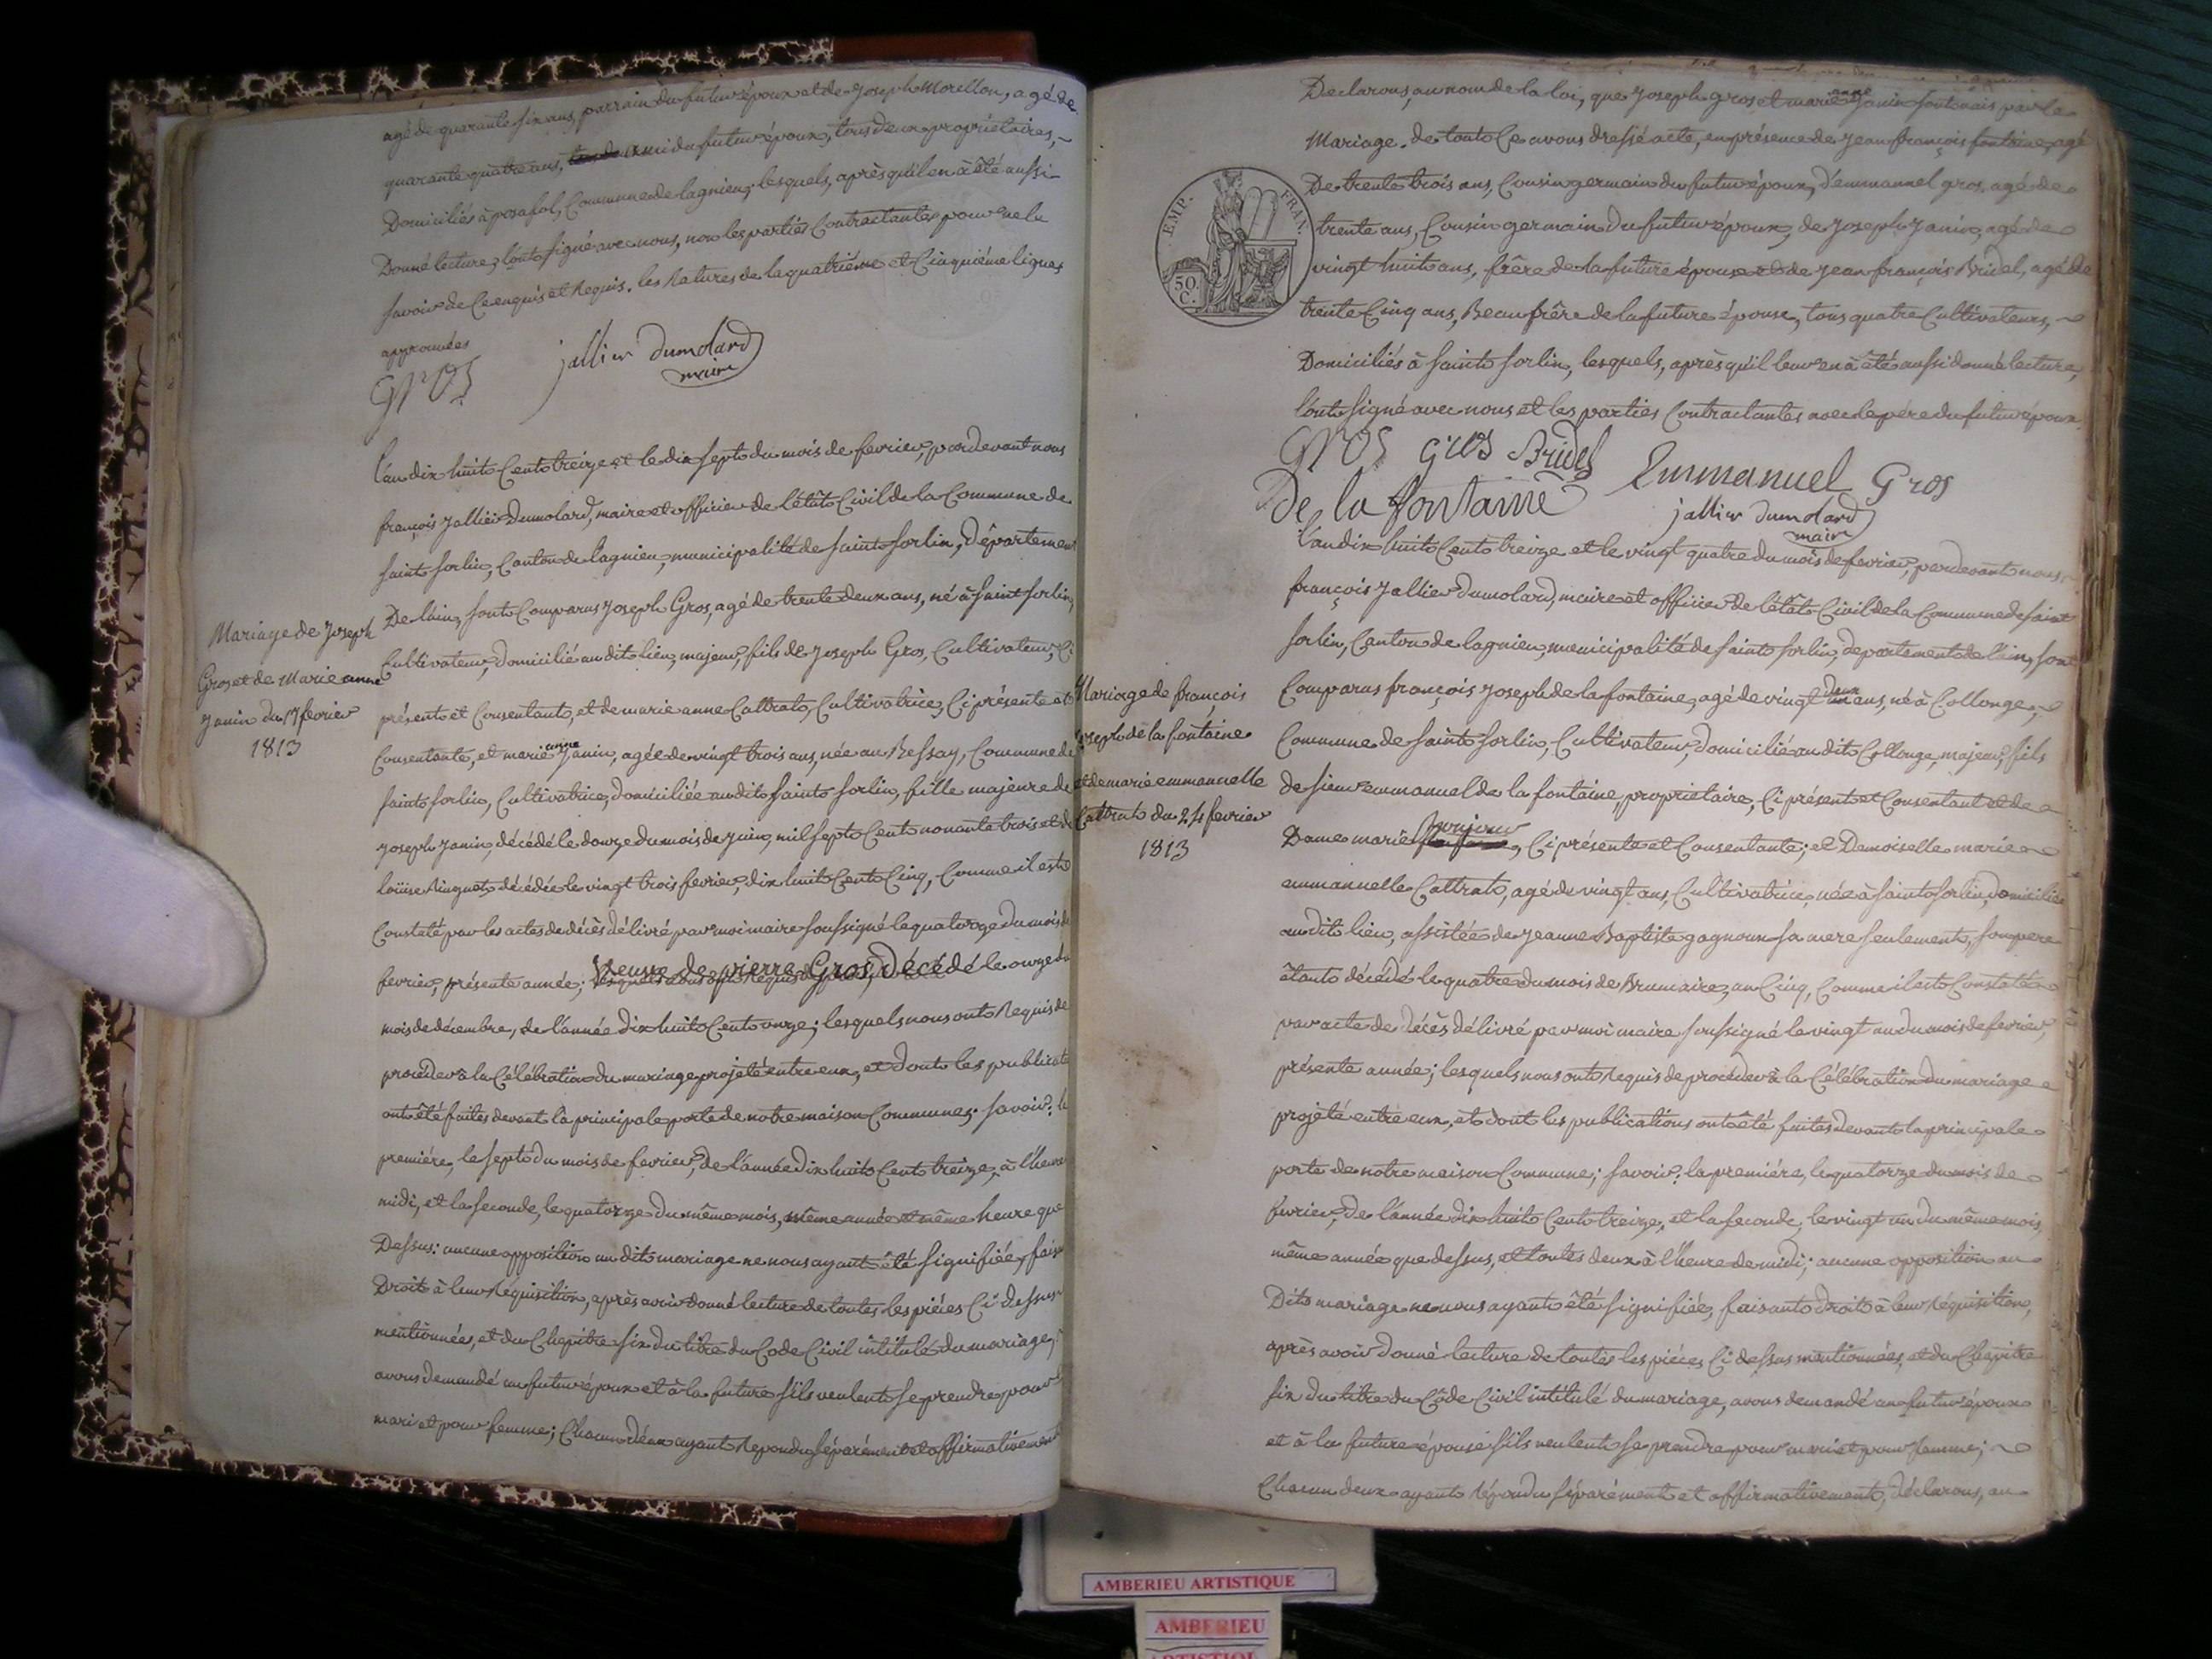 agé de quarante six ans, parrain du futur époux et de Joseph Morellon, agé de
quarante quatre ans, ami du futur époux, tous deux propriétaires,
Domiciliés à posafol, Commune de lagnieu; lesquels, après qu'il en à été aussi
Donné lecture, l'ont signé avec nous, non les parties Contractantes pour ne le
savoir de Ce enquis et Requis. les Ratures de la quatrième et Cinquième lignes
approuvées
GROS jallier dumolard
maire
l'an dix huit Cent treize et le dix sept du mois de fevrier, pardevant nous
françois Jallier Dumolard, maire et officier de l'état Civil de la Commune de
saint sorlin, Canton de lagnieu, municipalité de saint sorlin, Département
De l'ain, sont Comparus Joseph Gros, agé de trente deux ans, né à saint sorlin,
Mariage de Joseph
Gros et de Marie anne
Janin du 17 fevrier
1813
Cultivateur, domicilié audit lieu, majeur, fils de Joseph Gros, Cultivateur, Ci
présent et Consentant, et de marie anne Cattrat, Cultivatrice, Ci présente et
Consentante, et marie anne Janin, agée de vingt trois ans, née au Bessay, Commune de
saint sorlin, Cultivatrice, domiciliée audit saint sorlin, fille majeure de
Joseph Janin, décédé le douze du mois de Juin, mil sept Cent nonante trois et de
loüise Ringuet décédée le vingt trois fevrier, dix huit Cent Cinq, Comme il est
Constaté par les actes de décès délivré par moi maire soussigné le quatorze du mois de
fevrier, présente année; Veuve de pierre Gros, décédé le onze du
mois de décembre, de l'année dix huit Cent onze; lesquels nous ont Requis de
procéder à la Célébration du mariage projeté entre eux, et dont les publicat
ont été faites devant la principale porte de notre maison Commune; savoir: la
première, le sept du mois de fevrier, de l'année dix huit Cent treize, à l'heure
midi, et la seconde, le quatorze du même mois, même année et même heure que
Dessus: aucune opposition au dit mariage ne nous ayant été signifiée, faisa
Droit à leur Réquisition, après avoir donné lecture de toutes les pièces Ci dessus
mentionnées, et du Chapitre six du titre du Code Civil intitulé du mariage,
avons demandé au futur époux et à la future s'ils veulent se prendre pour
mari et pour femme; Chacun d'eux ayant Répondu séparément et affirmativement
Declarons, au nom de la loi, que Joseph gros et marie anne Janin sont unis par le
Mariage. de tout Ce avons dressé acte, en présence de Jean françois fontaine, agé
De trente trois ans, Cousin germain du futur époux, d'emmanuel gros, agé de
trente ans, Cousin germain Du futur époux, de Joseph Janin, agé de
vingt huit ans, frère de la future épouse et de Jean françois Bridel, agé de
trente Cinq ans, Beau frère de la future épouse, tous quatre Cultivateurs,
Domiciliés à saint sorlin, lesquels, après qu'il leur en à été aussi donné lecture,
l'ont signé avec nous et les parties Contractantes avec le père du futur époux.
EMP. FRAN.
50.
C.
GROS GROS Bridel Emmanuel Gros
De la fontaine jallier dumolard
maire
l'an dix huit Cent treize et le vingt quatre du mois de fevrier, pardevant nous
françois Jallier dumolard, maire et officier de l'état Civil de la Commune de saint
sorlin, Canton de lagnieu, municipalité de saint sorlin, departement de l'ain, sont
Mariage de françois
Joseph de la fontaine
et de marie emmanuelle
Cattrat du 24 fevrier
1813
Comparus françois Joseph de la fontaine, agé de vingt deux ans, né à Collonge,
Commune de saint sorlin, Cultivateur, domicilié audit Collonge, majeur, fils
de sieur emmanuel de la fontaine, proprietaire, Ci présent et Consentant et de
Dame marie , Ci présente et Consentante; et Demoiselle marie
emmanuelle Cattrat, agé de vingt ans, Cultivatrice, née à saint sorlin, domiciliée
au dit lieu, assistée de Jeanne Baptiste gagnoux sa mere seulement, son pere
étant décédé le quatre du mois de Brumaire, an Cinq, Comme il est Constaté
par acte de décès délivré par moi maire soussigné le vingt un du mois de fevrier,
présente année; lesquels nous ont Requis de procéder à la Célébration du mariage
projeté entre eux, et dont les publications ont été faites devant la principale
porte de notre maison Commune; savoir: la première, le quatorze du mois de
fevrier, de l'année dix huit Cent treize, et la seconde, le vingt un du même mois,
même année que dessus, et toutes deux à l'heure de midi; aucune opposition au
Dit mariage ne nous ayant été signifiée, faisant droit à leur Réquisition,
après avoir donné lecture de toutes les pièces Ci dessus mentionnées, et du Chapitre
six du titre du Code Civil intitulé du mariage, avons demandé au futur époux
et à la future épouse s'ils veulent se prendre pour mari et pour femme;
Chacun deux ayant Répondu séparément et affirmativement, déclarons, au
AMBERIEU ARTISTIQUE
AMBERIEU
ARTISTIQUE